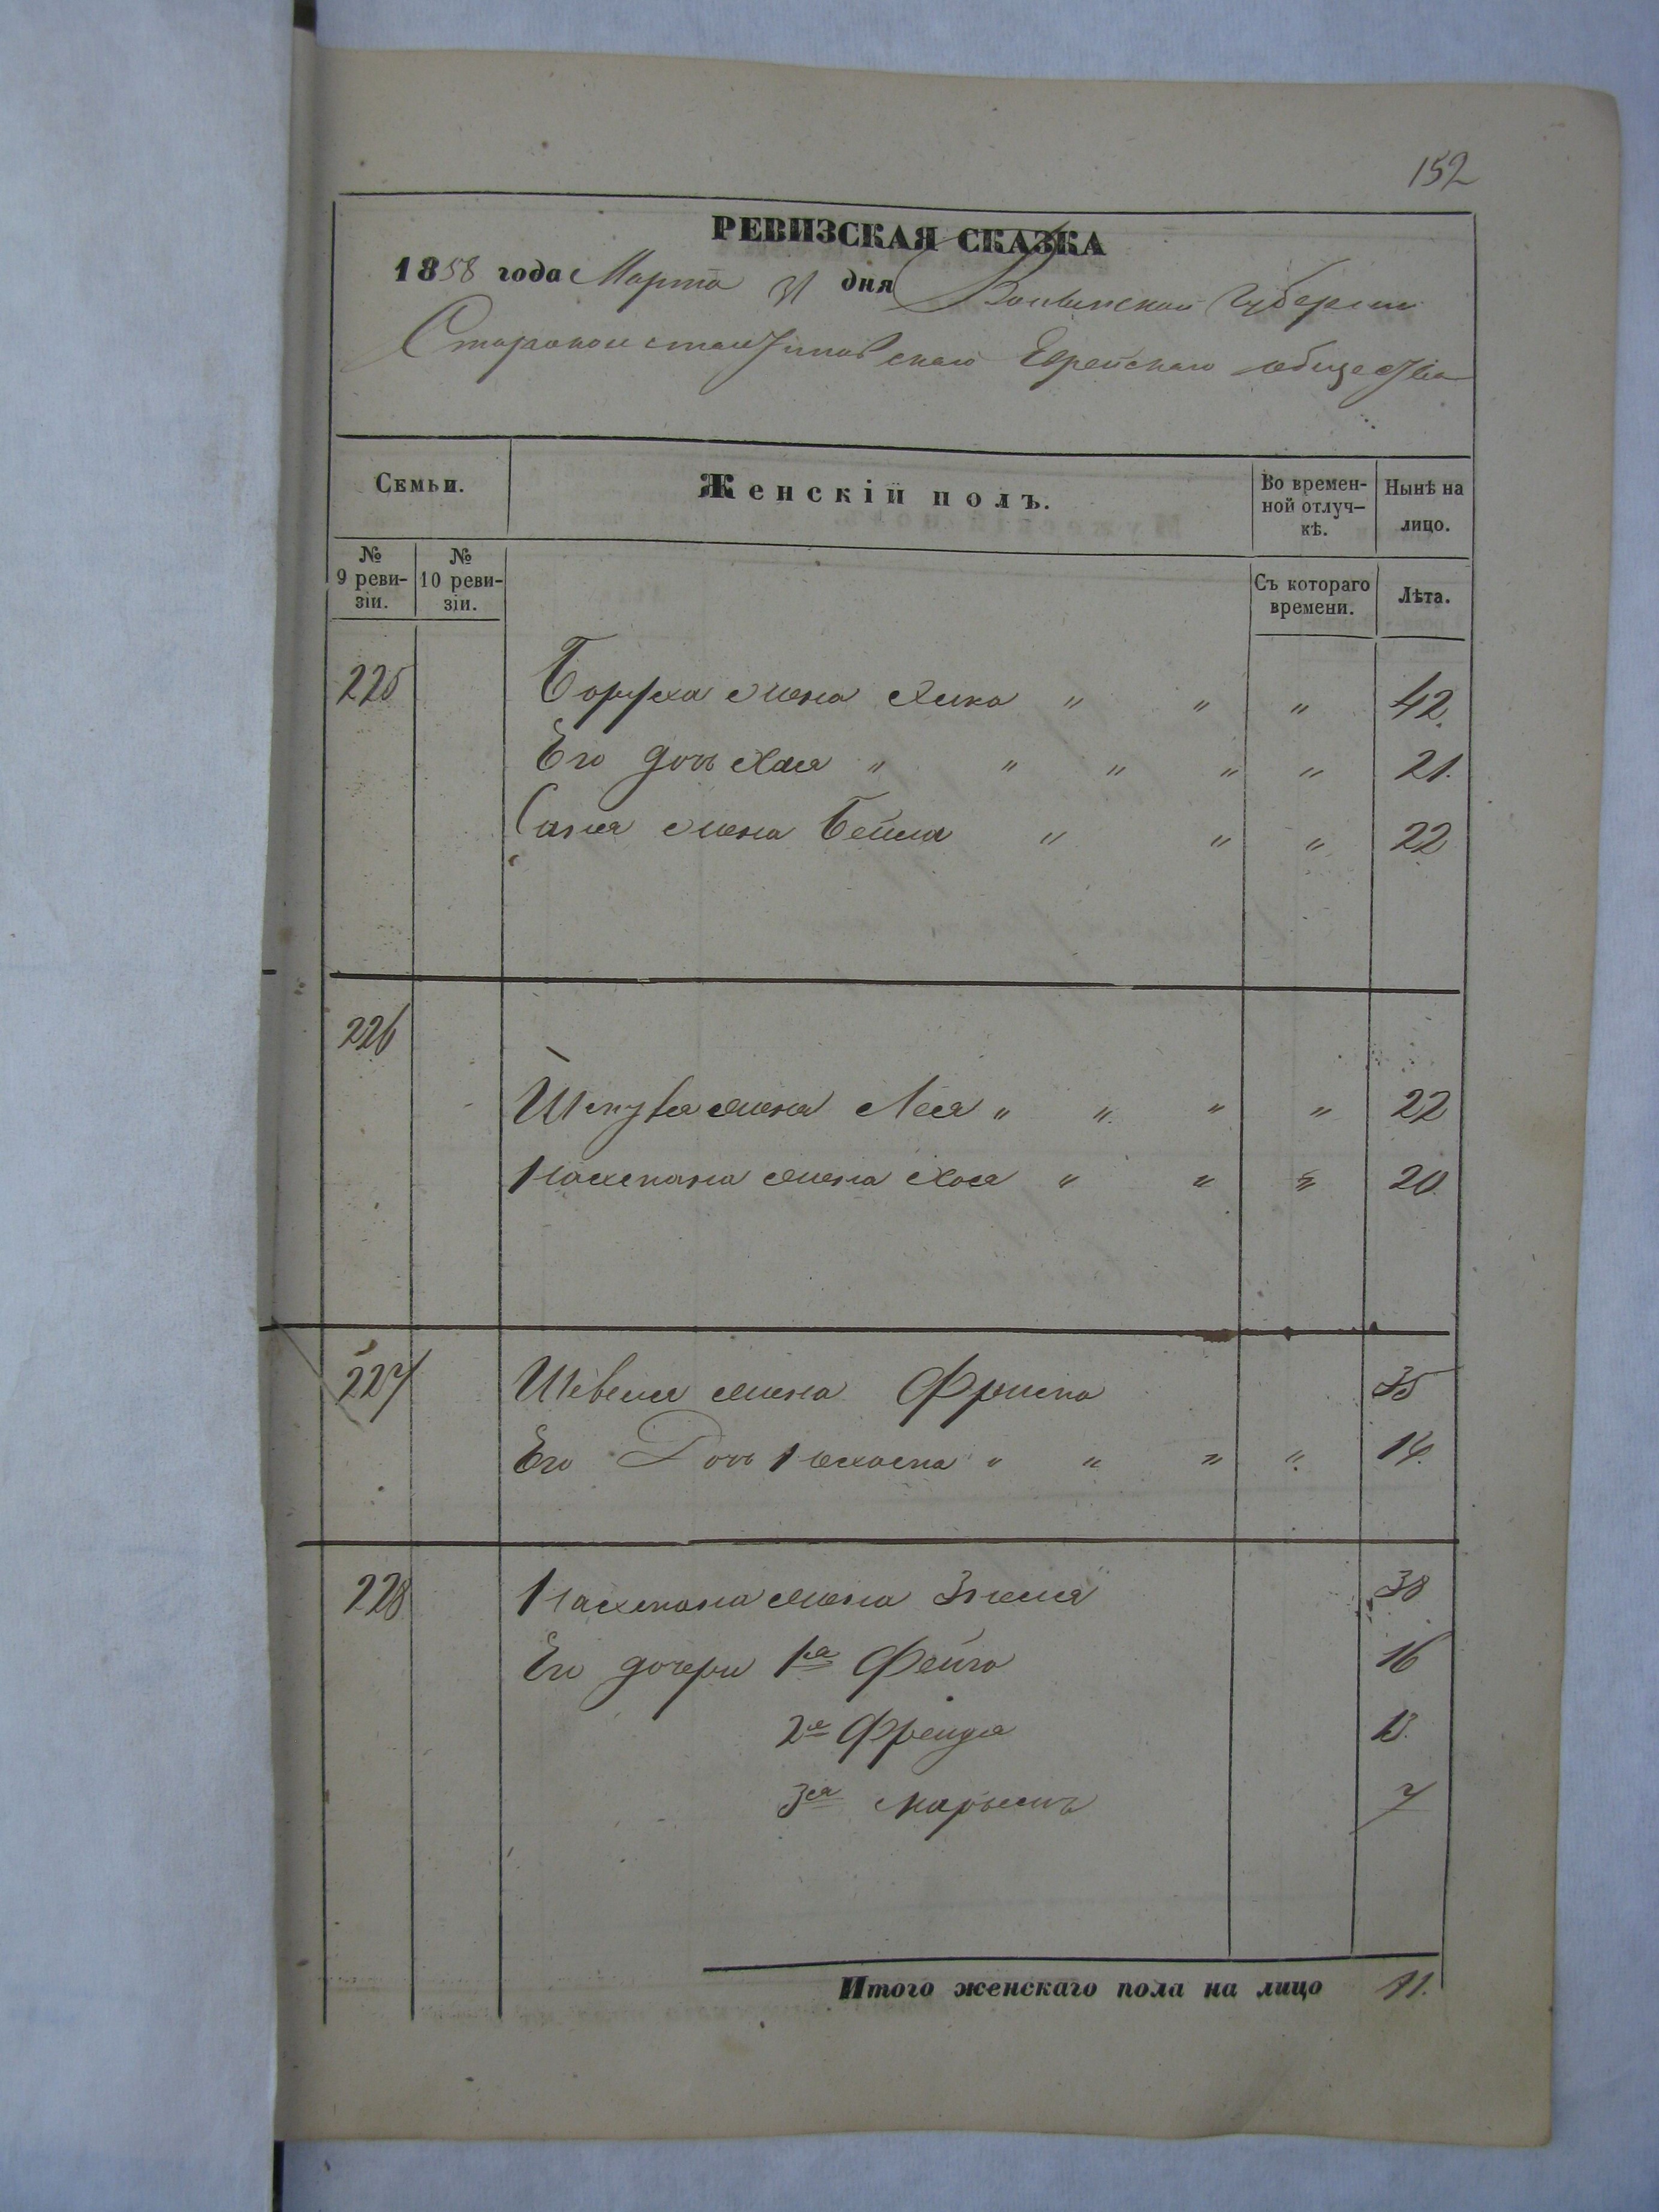 152
РЕВИЗСКАЯ СКАЗКА
1858 года Марта 31 дня Волынской Губернии
Староконстантиновскаго Еврейскаго общества
Семьи.
Женскій полъ.
Во времен-
ной отлуч-
кѣ.
Нынѣ на
лицо.
№
9 реви-
зіи.
№
10 реви-
зіи.
Съ котораго
времени.
Лѣта.
225 Боруха жена Хика " " " 42.
Его дочь Хая " " " " " 21.
жена Бейла " " " 22
226
жена Лея " " " " 22
Нахмана жена Хая " " " 20
227 Шевеля жена 35
Его Дочь " " " " 14.
228 Нахмана жена 38
Его дочери 1я Фейга 16
2я Фрейда 13.
3я Марьемъ 7
Итого женскаго пола на лицо 11.